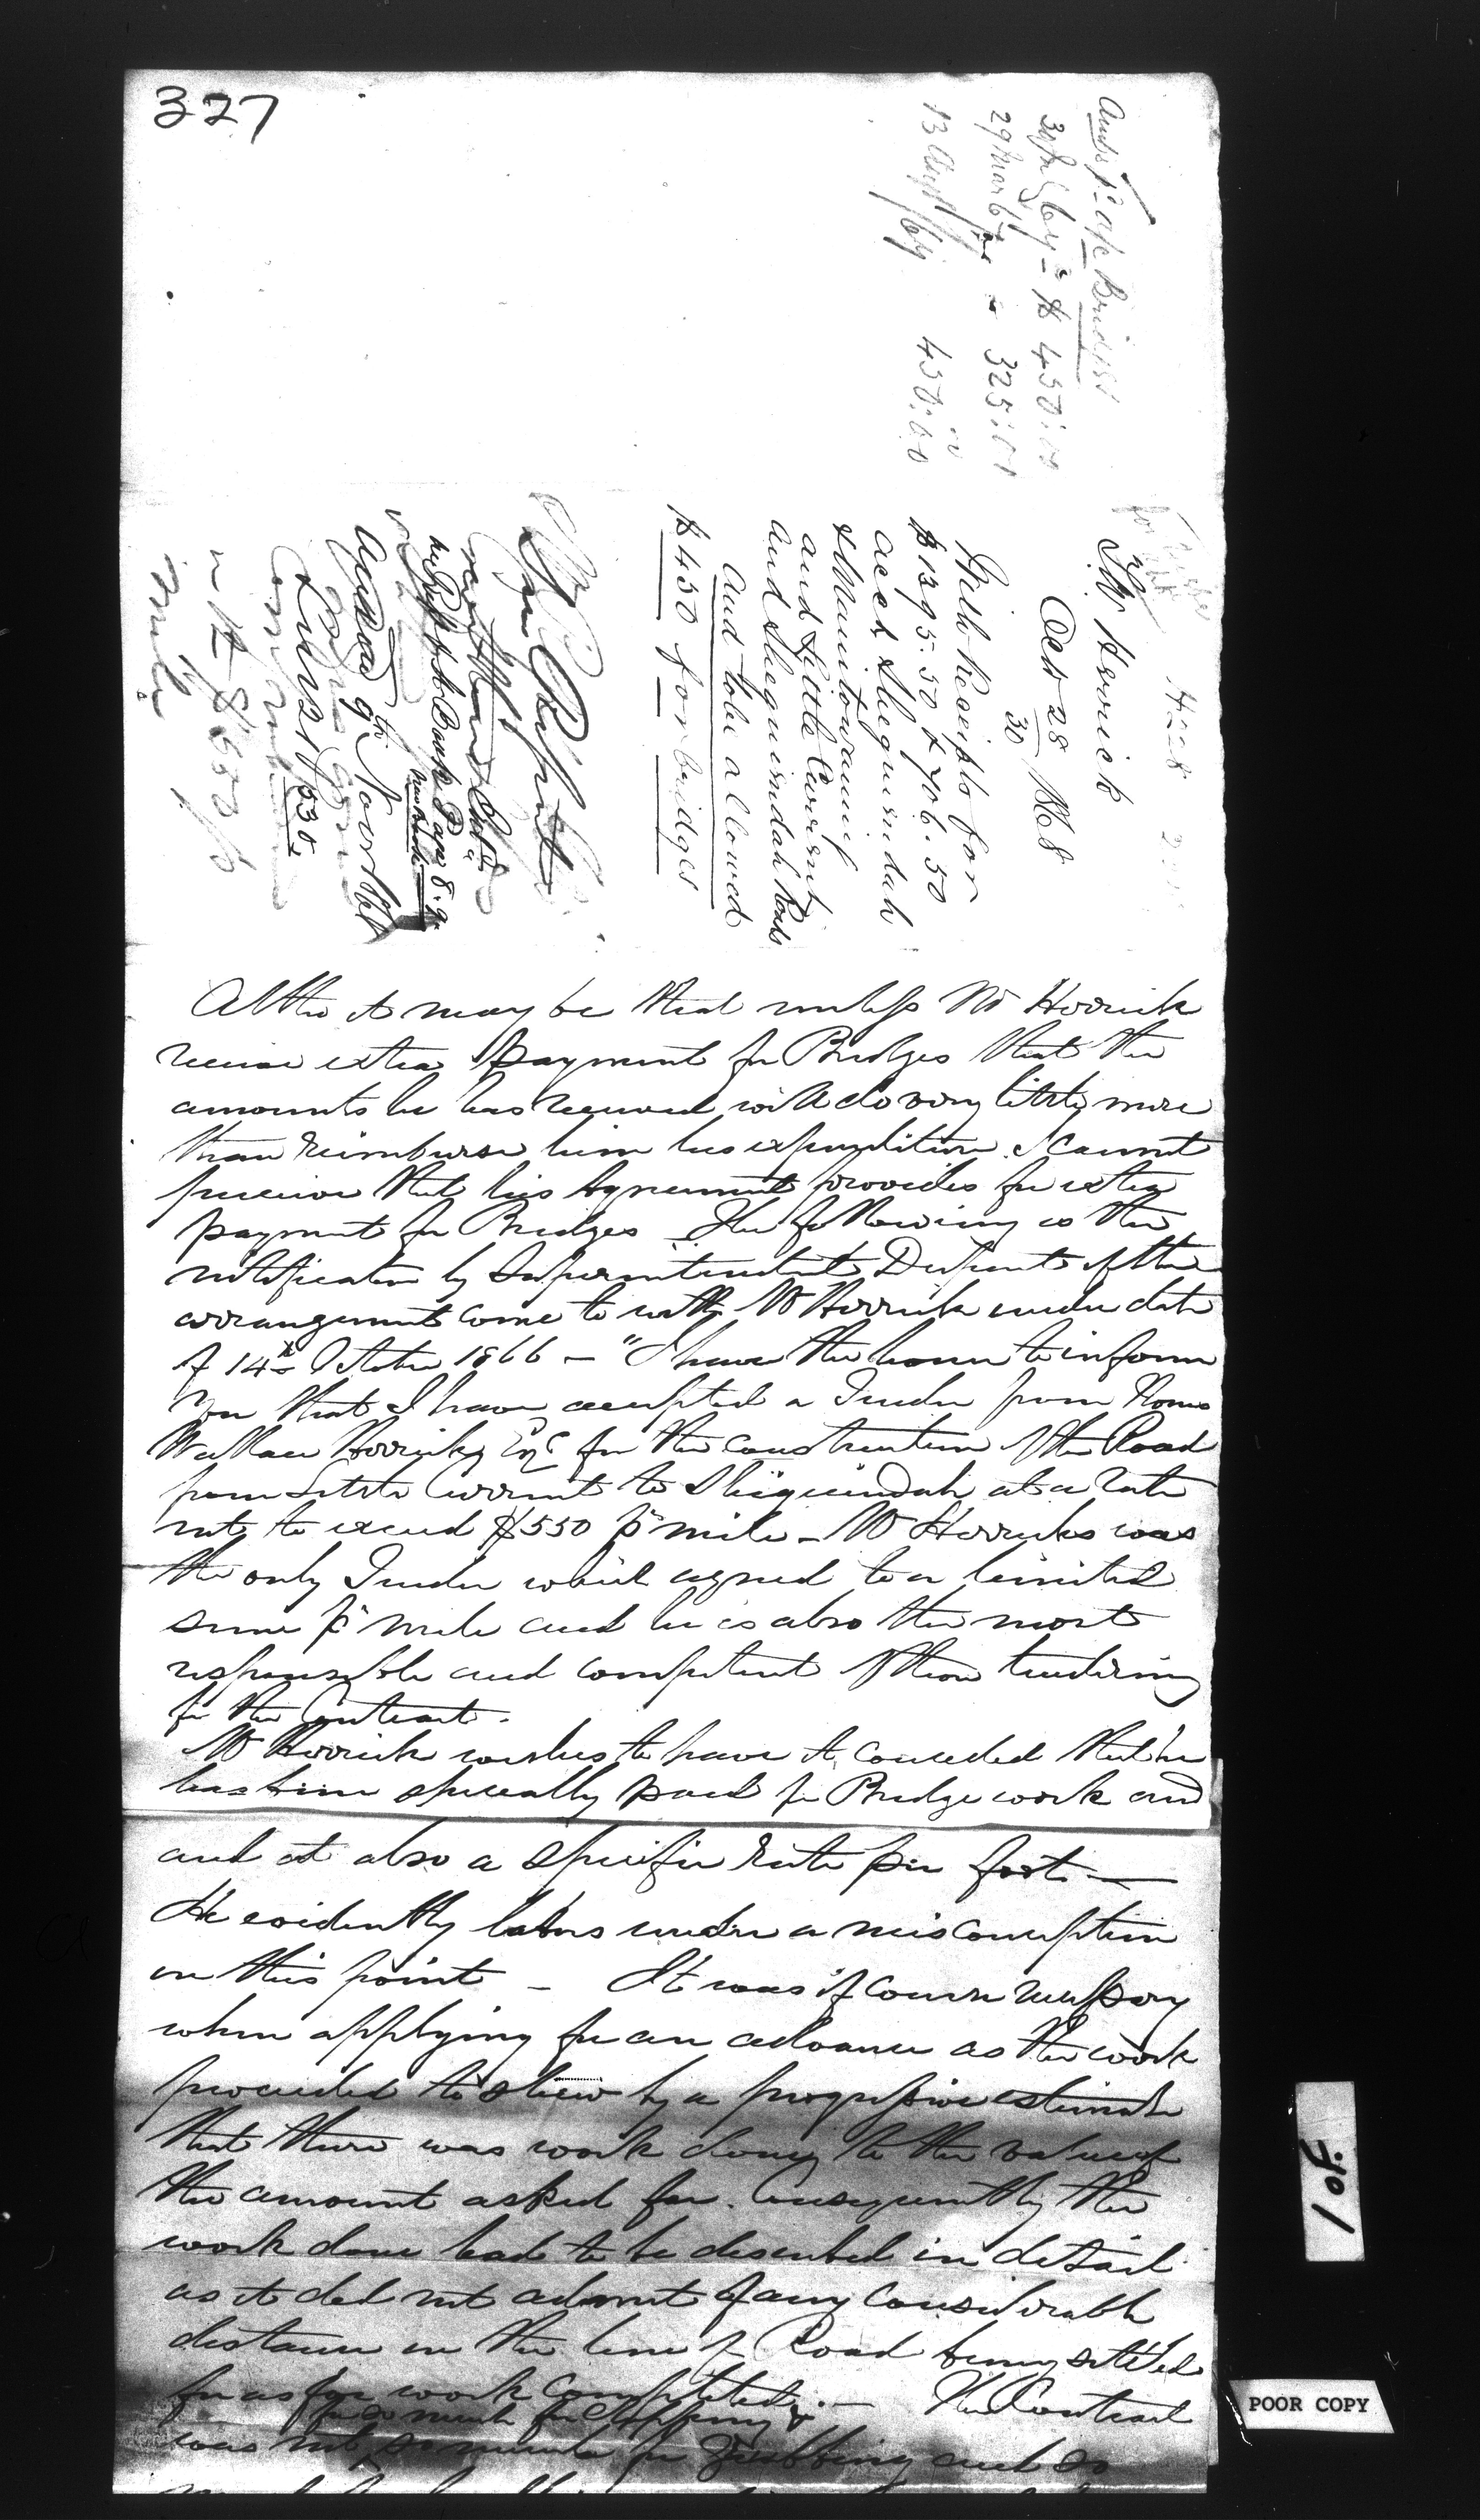 327
Amts pd a/c Bridges
450:
29 Mar 325:
13 Aug 450:00
T W Herrick
Oct 28
30
1868
With Receipts for
$1395.50 & 706.50
acct Sheguindah
& Manitowaning
and Little Current
and Sheguindah Roads
and to be allowed
$450 for bridges
9th Novr
530
Altho it may be that unless Mr Herrick
receive extra payment for Bridges that the
amounts he has received will do very little more
than reimburse him his expenditure. I cannot
perceive that his Agreement provides for extra
payment for Bridges The following is the
notification by Superintendent Dupont of the
arrangement come to with Mr Herrick under date
of 14th October 1866 — "I have the honor to inform
you that I have accepted a Tender from Thomas
Wallace Herrick Esqr for the construction of the Road
from Little Current to Sheguindah at a rate
not to exceed $550 pr mile — Mr Herricks was
the only Tender which agreed to a limited
sum pr mile and he is also the most
responsible and competent of those tendering
for the Contract.
Mr Herrick wishes to have it conceded that he
has been specially paid for Bridge work and
and at also a specific rate per foot —
He evidently labors under a misconception
on this point — It was of course necessary
when applying for an advance as the work
proceeded to shew by a progressive estimate
that there was work done to the value of
the amount asked for. Consequently the
work done had to be described in detail
as it did not admit of any considerable
distance on the line of Road being settled
for as for work completed. — The Contract
so much for chopping &
was not so much for grubbing and so
1 of.
POOR COPY